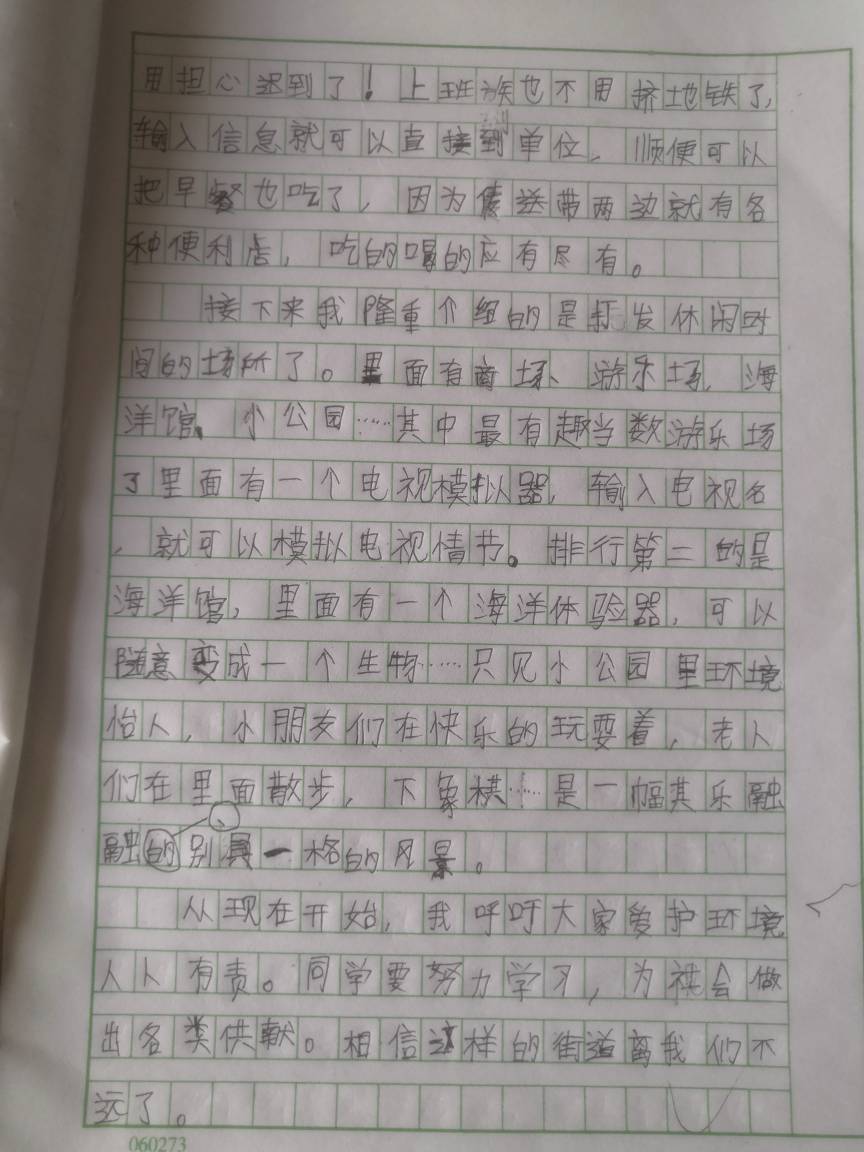 用担心迟到了！上班族也不用挤地铁了,
输入信息就可以直接到单位，顺便可以
把早餐也吃了，因为传送带两边就有各
种便利店，吃的喝的应有尽有。
接下来我隆重介绍的是打发休闲时
间的场所了。里面有商场、游乐场、海
洋馆、小公园……其中最有趣当数游乐场
了里面有一个电视模拟器，输入电视名
，就可以模拟电视情节。排行第二的是
海洋馆，里面有一个海洋体验器，可以
随意变成一个生物……只见小公园里环境
怡人，小朋友们在快乐的玩耍着，老人
们在里面散步，下象棋……是一幅其乐融
融的、别具一格的风景。
从现在开始，我呼吁大家爱护环境
人人有责。同学要努力学习，为社会做
出各类供献。相信这样的街道离我们不
远了。
060273